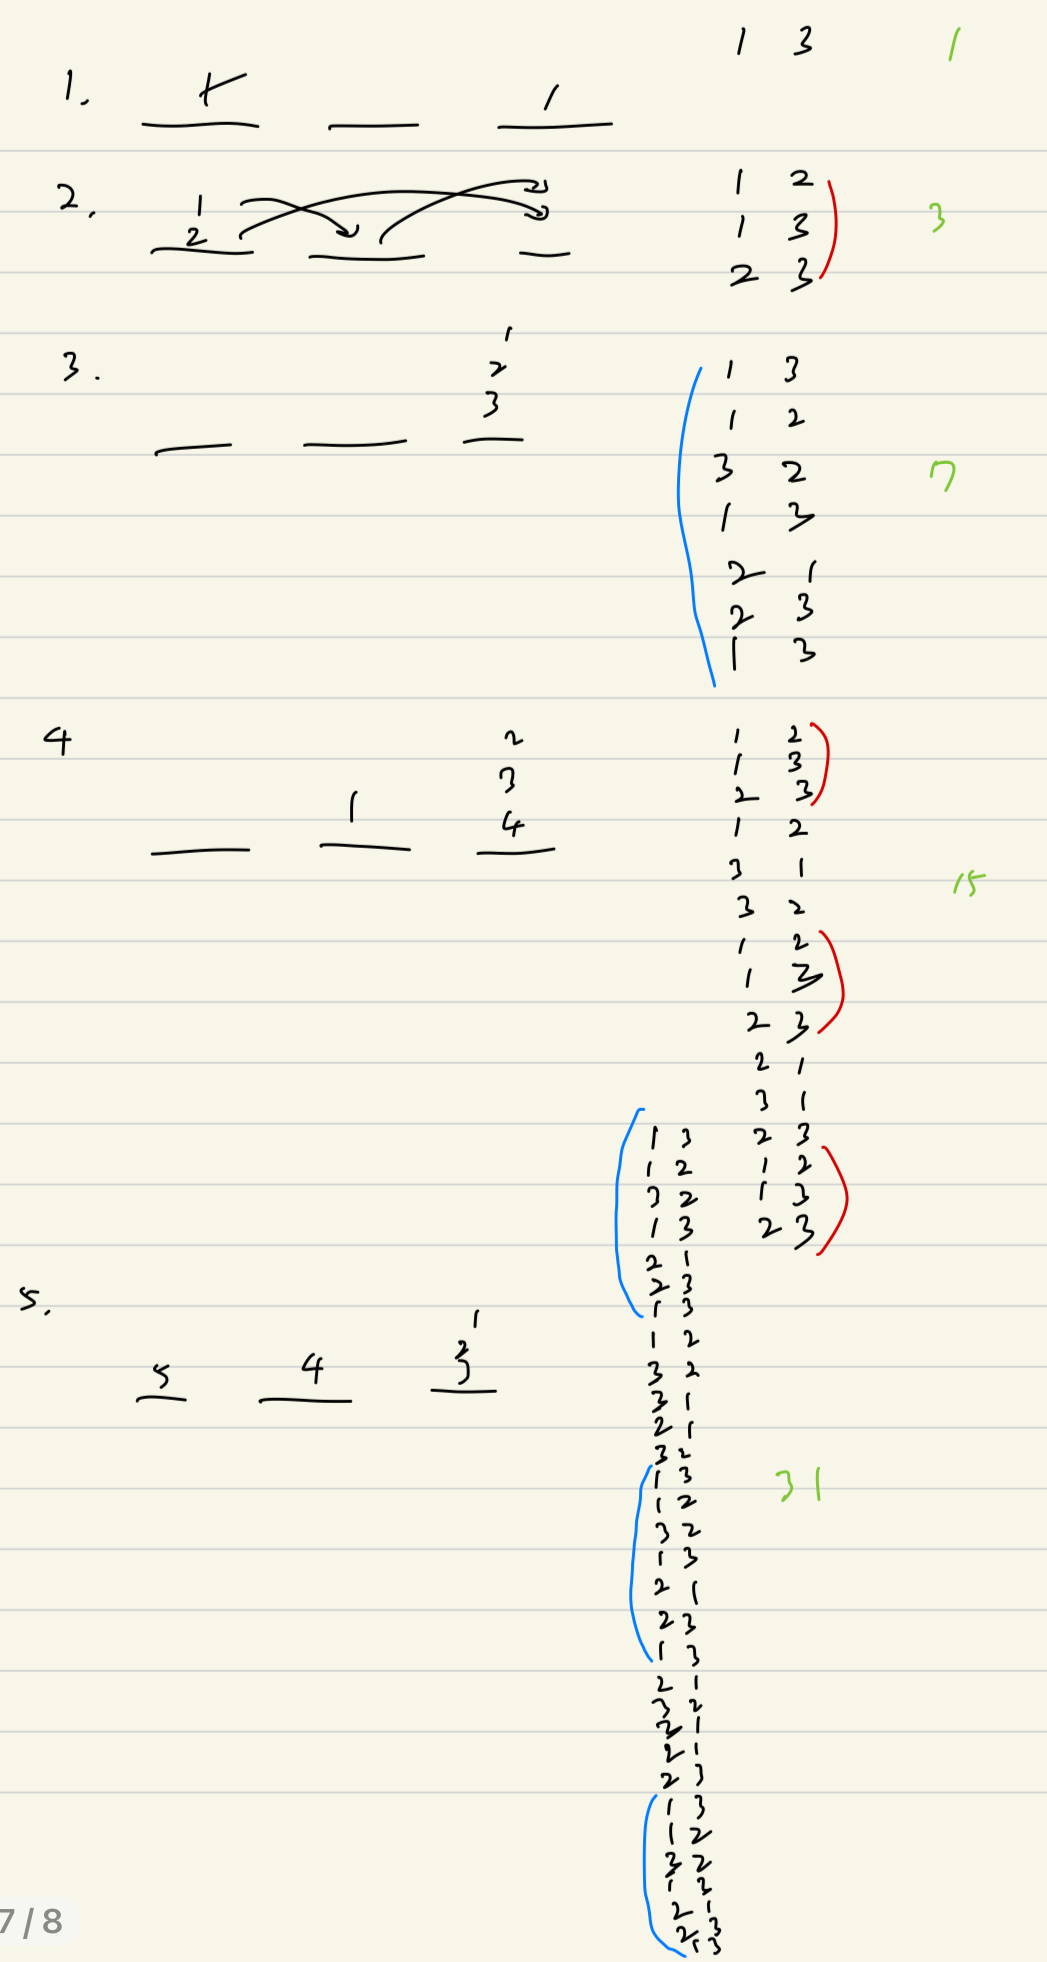 1 3 1
1. 1 1
2. 1 1 2
2 1 3 3
2 3
3. 1 1 3
2 1 2
3 3 2 7
1 3
2 1
2 3
1 3
4 2 1 2
3 1 3
1 4 2 3
1 2
3 1 15
3 2
1 2
1 3
2 3
2 1
3 1
1 3 2 3
1 2 1 2
3 2 1 3
1 3 2 3
2 1
2 3
5. 1 1 3
2 1 2
5 4 3 3 2
3 1
2 1
3 2
1 3 31
1 2
3 2
1 3
2 1
2 3
1 3
2 1
3 2
3 1
2 1
2 3
1 3
1 2
3 2
1 3
2 1
2 3
1 3
7/8